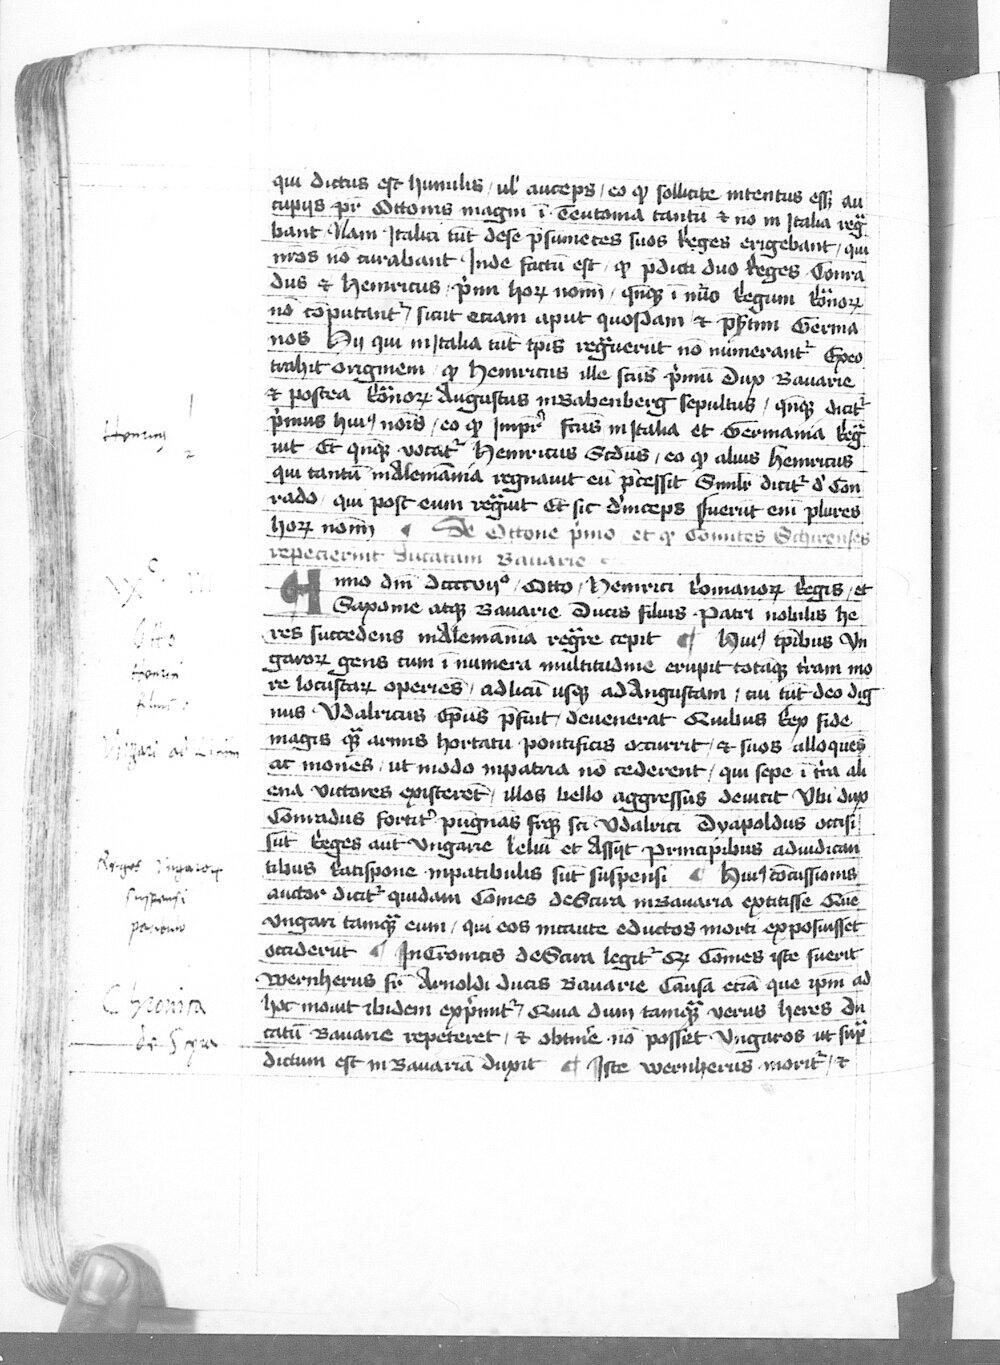 qui dictus est humilis / ul' auceps / eo qp sollicite intentus esse au
cupiis pr̄ Ottonis magni ī Teutonia tantū et nō in Italia reḡ
bant Nam Italici tūt dese p̄sumētes suos Reges erigebant / qui
nr̄os nō curabant Inde factū est / qp p̄dicti duo Reges Conra
dus et Heinricus / p̄mi hoꝝ noīm / qn̄qꝫ ī nūo Regum Rōnoꝝ
nō cōputant᷑ / sicut eciam aput quosdam et Germa
nos Hij qui in Italia tūt tp̄is reḡverūt nō numerant᷑ Ex eo
trahit originem / qp Heinricus ille scūs p̄mū Dux Bavarie
et postea Rōnoꝝ Augustus in Babenberg sepultus / qn̄qꝫ dicit᷑
p̄mus hui9 nōis / eo qp Impr̄ fcūs in Italia et Germania Reḡ
vit Et qn̄qꝫ vocat᷑ Heinricus Scdus / eo qp alius heinricus
qui tantū in Alemānia regnavit eū p̄cessit Simlr̄ dicit᷑ d' Con
rado / qui post eum reḡvit Et sic d'inceps fuerūt eni plures
hoꝝ noīm ¶ De Ottone p̄mo et qp Comites Schirenses
repecierint ducatum Bavarie
Anno dnī dccccvijº / Otto / Heinrici Romanoꝝ Regis / et
Saxonie atqꝫ Bavarie Ducis filius Patri nobilis he
res succedens in Alemānia reḡre cepit ¶ Hui9 tp̄ibus Un
garoꝝ gens cum ī numera multitudine erupit totāqꝫ t'ram mo
re locustaꝝ operiēs / ad licū usqꝫ ad Augustam / cui tūt deo dig
nus Udalricus Ep̄us p̄fuit / devenerat Quibus Rex fide
magis qꝫ armis hortatu pontificis occurrit / et suos alloquēs
ac monēs / ut modo in patria nō cederent / qui sepe ī t'ra ali
ena victores existerēt / illos bello aggressus devicit Ubi dux
Conradus fortit' pugnās fr̄qꝫ sci Udalrici Dyapoldus occisi
sūt Reges aūt Ungarie Lelui et Assijt principibus adiudican
tibus Ratispone in patibulis sūt suspensi ¶ Hui9 cōcussionis
auctor dicit᷑ quidam Comes de Scira in Bavaria extitisse Quē
Ungari tamqꝫ eum / qui eos incaute eductos morti exposuisset
occiderūt ¶ In Cronicis de Scira legit᷑ qꝫ Comes iste fuerit
Wernherus fr̄ Arnoldi ducis Bavarie Causa eciā que ip̄m ad
hoc movit ibidem exp̄mit᷑ / Quia dum tamqꝫ verus heres Du
catū Bavarie repeteret / et obtinē nō posset Ungaros ut sup̄
dictum est in Bavariā duxit ¶ Iste wernherus morit᷑ / et
Otto
Heinrici
filius
Ungari ad Licum
Reges Ungaroꝝ
suspensi
Chronica
de Scyra